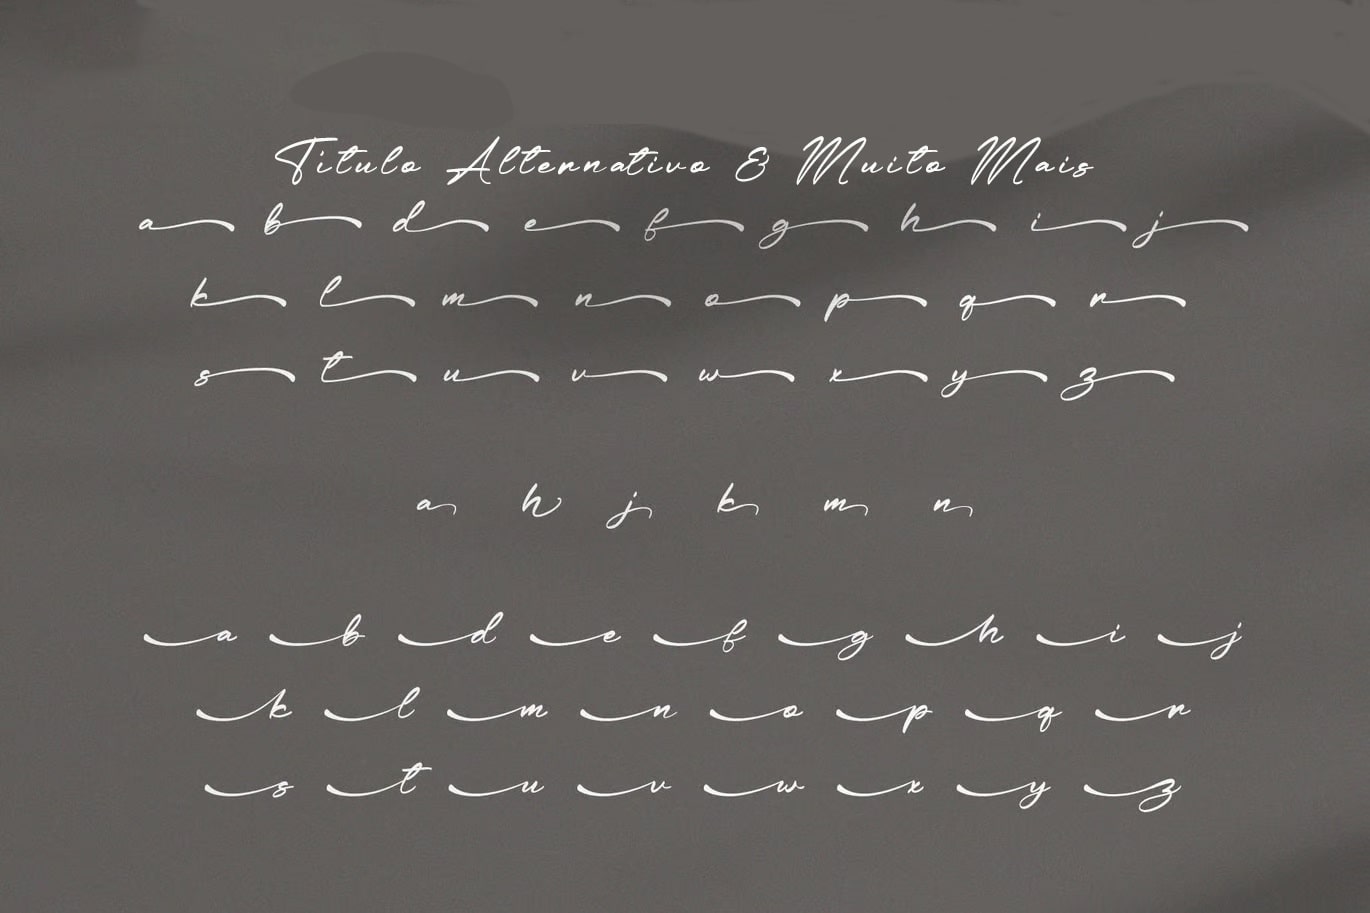 Titulo Alternativo & Muito Mais
a b d e f g h i j
k l m n o p q r
s t u v w x y z
a h j k m n
a b d e f g h i j
k l m n o p q r
s t u v w x y z